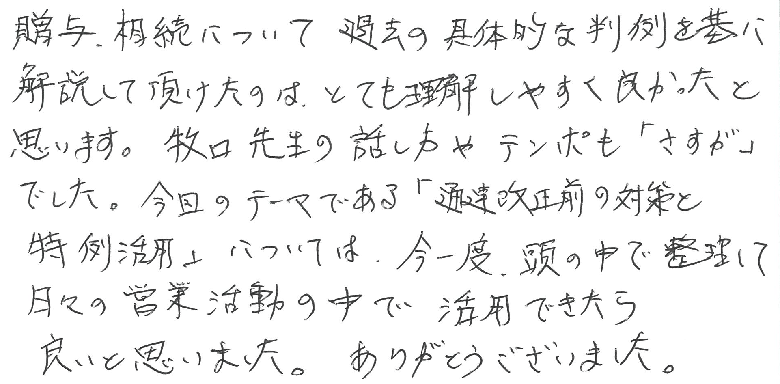 贈与、相続について 過去の具体的な判例を基に
解説して頂けたのは、とても理解しやすく良かったと
思います。牧口先生の話し方やテンポも「さすが」
でした。今回のテーマである「通達改正前の対策と
特例活用」については、今一度、頭の中で整理して
日々の営業活動の中で 活用できたら
良いと思いました。ありがとうございました。